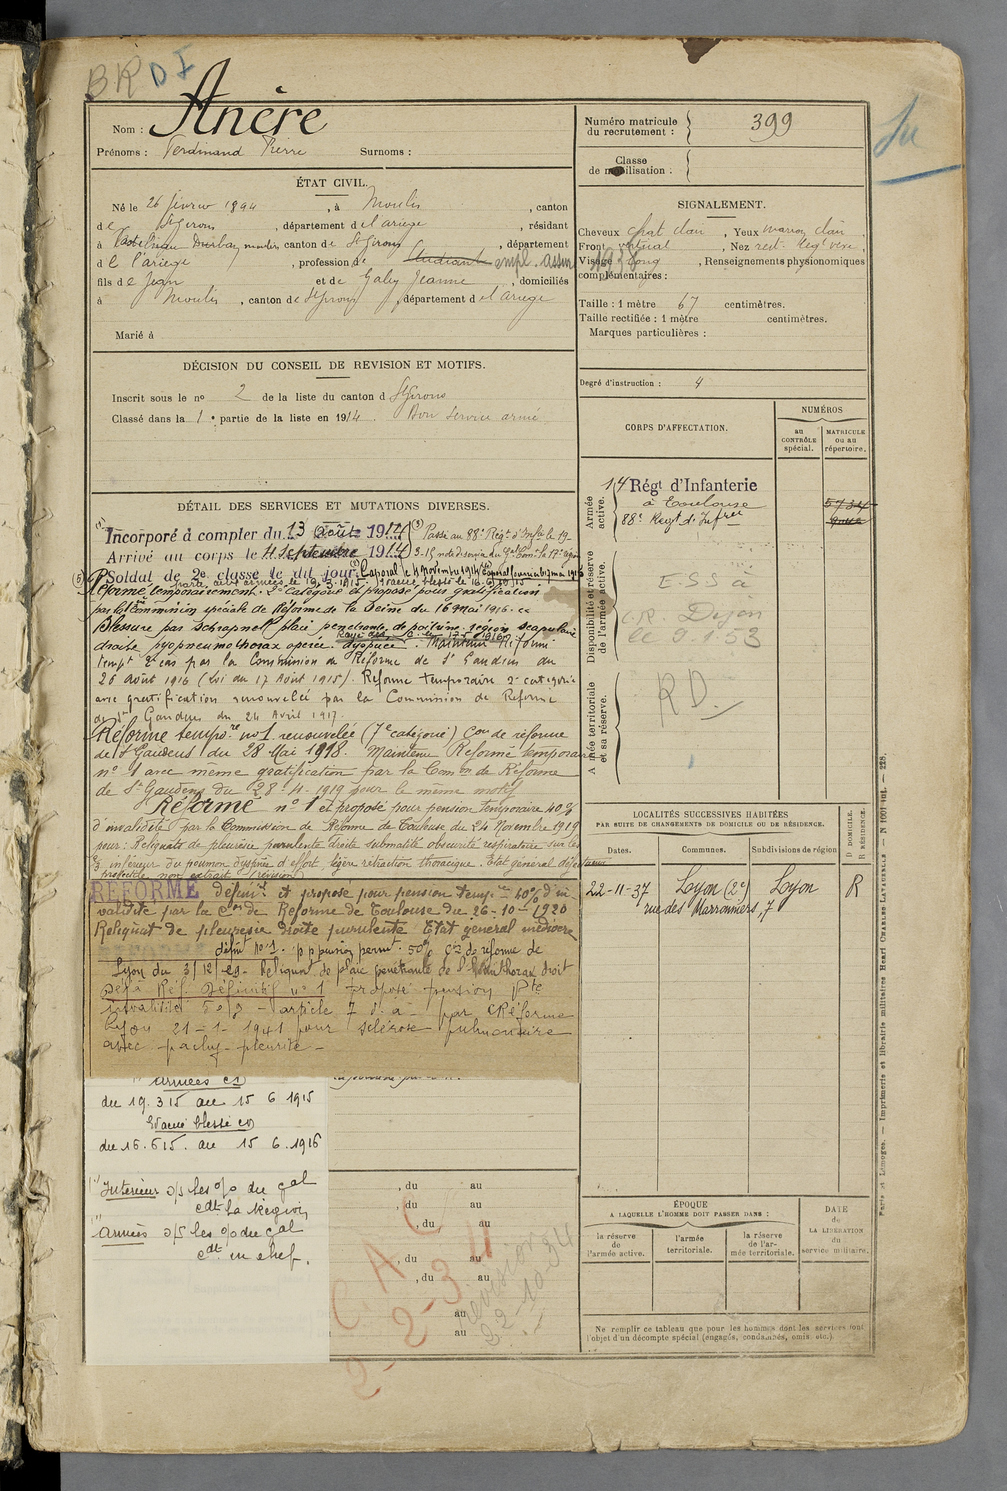 BR D I
Anère
Nom :
Prénoms : Ferdinand Pierre Surnoms :
ÉTAT CIVIL.
Né le 26 février 1894, à Moulis, canton
de St Girons, département de l'ariège, résidant
à Castelnau Durban, canton de St Girons, département
de l'ariège, profession d étudiant empl. assur
fils de Jean et de Galey Jeanne, domiciliés
à Moulis, canton de St Girons, département de l'ariège
Marié à
DÉCISION DU CONSEIL DE REVISION ET MOTIFS.
Inscrit sous le nº 2 de la liste du canton d St Girons
Classé dans la 1e partie de la liste en 1914. Bon service armé
DÉTAIL DES SERVICES ET MUTATIONS DIVERSES.
Incorporé à compter du 13 août 1914
Arrivé au corps le 4 Septembre 1914
(3) Passé au 88e Régt d'Infie le 19-
3-15 note de service du Gal Comt la 17e région
Soldat de 2e classe le dit jour. Caporal le 11 novembre 1914
parti aux armées le 19.3.1915. évacué blessé le 16.6.1915
(5) Réformé temporairement. 2e Catégorie et proposé pour gratification
par la Commission spéciale de Réforme de la Seine du 16 mai 1916.
Blessure par schrapnell plaie pénétrante de poitrine région scapulaire
droite pyopneumothorax opéré. dyspnée. Maintenu Réformé
tempt 2e cas par la Commission de Réforme de St Gaudens du
26 août 1916 (Loi du 17 Août 1915). Réforme temporaire 2e catégorie
avec gratification renouvelée par la Commission de Réforme
de St Gaudens du 24 Avril 1917.
Réforme tempore nº 1 renouvelée (7e catégorie) Con de réforme
de St Gaudens du 28 Mai 1918. Maintenu Réformé temporaire
nº 1 avec même gratification par la Comon de Réforme
de St Gaudens du 28-4-1919 pour le même motif
Réformé nº 1 et proposé pour pension temporaire 40%
d'invalidité par la Commission de Réforme de Toulouse du 24 Novembre 1919
pour : Reliquats de pleurésie purulente droite submatité obscurité respiratoire sur les
2/3 inférieurs du poumon dyspnée d'effort légère rétraction thoracique. Etat général
projectile non extrait (révision)
RÉFORMÉ définit et proposé pour pension tempre 40% d'in
validité par la Con de Réforme de Toulouse du 26-10-1920
Reliquat de pleurésie droite purulente Etat général médiocre
définit Nº 1. p p pension permt. 50% Con de réforme de
Lyon du 3/12/29. Reliquat de plaie pénétrante de l'hémithorax droit
Déjà Réf. Définitif nº 1 proposé pension pte
invalidité - article 7 par Réforme
Lyon 21-1-1941 pour sclérose pulmonaire
avec pachy-pleurite -
Armées
du 19.3 15 au 15 6 1915
Evacué blessé
du 16.6 15. au 15 6.1916
Intérieur s/s les o/o du gal
cdt la Région
Armées s/s les o/o du gal
cdt en chef.
, du au
, du au
, du au
, du au
, du au
au
au
révision
22-10-34
Numéro matricule
du recrutement : 399
Classe
de mobilisation :
SIGNALEMENT.
Cheveux chât clair, Yeux marron clair,
Front vertical, Nez rect.
Visage long, Renseignements physionomiques
complémentaires :
Taille : 1 mètre 67 centimètres.
Taille rectifiée : 1 mètre centimètres.
Marques particulières :
Degré d'instruction : 4
CORPS D'AFFECTATION.
NUMÉROS
au
CONTRÔLE
spécial.
MATRICULE
ou au
répertoire.
Armée
active.
14 Régt d'Infanterie
à Toulouse
88e Regt d'Infrie
Disponibilité et réserve
de l'armée active.
E.S.S à
C.R. Dijon
le 9.1.53
Armée territoriale
et sa réserve.
RD.
LOCALITÉS SUCCESSIVES HABITÉES
PAR SUITE DE CHANGEMENTS DE DOMICILE OU DE RÉSIDENCE.
Dates.
Communes.
Subdivisions de région
D DOMICILE.
R RÉSIDENCE.
22-11-37 Lyon (2e) Lyon R
rue des Marronniers, 7
ÉPOQUE
A LAQUELLE L'HOMME DOIT PASSER DANS :
la réserve
de
l'armée active.
l'armée
territoriale.
la réserve
de l'ar-
mée territoriale.
DATE
de
LA LIBÉRATION
du
service militaire.
Ne remplir ce tableau que pour les hommes dont les services font
l'objet d'un décompte spécial (engagés, condamnés, omis, etc.).
Paris et Limoges. — Imprimerie et librairie militaires Henri CHARLES-LAVAUZELLE.